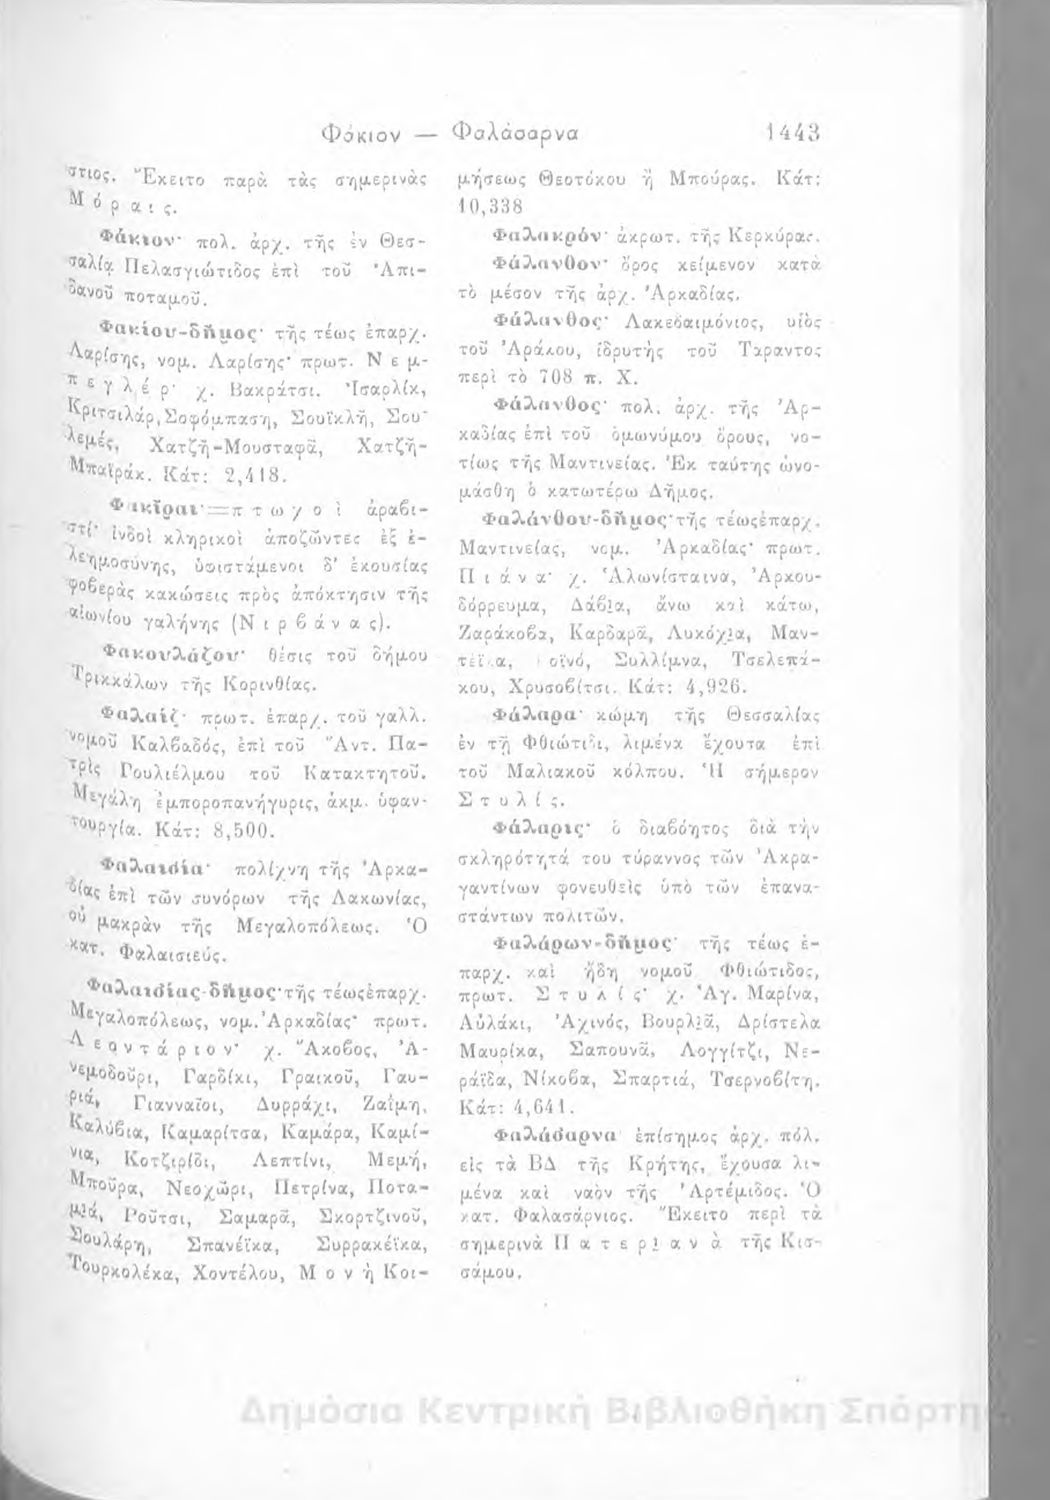 Φάκιον — Φαλάσαρνα 1443
στιος. Ἔκειτο παρὰ τὰς σημερινὰς
Μόραις.
Φάκιον· πολ. ἀρχ. τῆς ἐν Θεσ-
σαλίᾳ Πελασγιώτιδος ἐπὶ τοῦ Ἀπι-
δανοῦ ποταμοῦ.
Φακίου-δῆμος· τῆς τέως ἐπαρχ.
Λαρίσης, νομ. Λαρίσης· πρωτ. Νεμ-
πεγλέρ· χ. Βακράτσι. Ἰσαρλίκ,
Κριτσιλάρ, Σοφόμπαση, Σουϊκλῆ, Σου-
λεμές, Χατζῆ-Μουσταφᾶ, Χατζῆ-
Μπαϊράκ. Κάτ: 2,418.
Φακῖραι·=πτωχοὶ ἀραβι-
στί· ἰνδοὶ κληρικοὶ ἀποζῶντες ἐξ ἐ-
λεημοσύνης, ὑφιστάμενοι δ' ἑκουσίας
φοβερὰς κακώσεις πρὸς ἀπόκτησιν τῆς
αἰωνίου γαλήνης (Νιρβάνας).
Φακουλάζου· θέσις τοῦ δήμου
Τρικκάλων τῆς Κορινθίας.
Φαλαίζ· πρωτ. ἐπαρχ. τοῦ γαλλ.
νομοῦ Καλβαδός, ἐπὶ τοῦ Ἄντ. Πα-
τρὶς Γουλιέλμου τοῦ Κατακτητοῦ.
Μεγάλη ἐμποροπανήγυρις, ἀκμ. ὑφαν-
τουργία. Κάτ: 8,500.
Φαλαισία· πολίχνη τῆς Ἀρκα-
δίας ἐπὶ τῶν συνόρων τῆς Λακωνίας,
οὐ μακρὰν τῆς Μεγαλοπόλεως. Ὁ
κατ. Φαλαισιεύς.
Φαλαισίας-δῆμος· τῆς τέως ἐπαρχ.
Μεγαλοπόλεως, νομ. Ἀρκαδίας· πρωτ.
Λεοντάριον· χ. Ἄκοβος, Ἀ-
νεμοδοῦρι, Γαρδίκι, Γραικοῦ, Γαυ-
ριά, Γιανναῖοι, Δυρράχι, Ζαΐμη,
Καλύβια, Καμαρίτσα, Καμάρα, Καμί-
νια, Κοτζιρίδι, Λεπτίνι, Μεμῆ,
Μποῦρα, Νεοχῶρι, Πετρίνα, Ποτα-
μιά, Ροῦτσι, Σαμαρᾶ, Σκορτζινοῦ,
Σουλάρη, Σπανέϊκα, Συρρακέϊκα,
Τουρκολέκα, Χοντέλου, Μονὴ Κοι-
μήσεως Θεοτόκου ἢ Μπούρας. Κάτ:
10,338
Φαλακρόν· ἀκρωτ. τῆς Κερκύρας.
Φάλανθον· ὄρος κείμενον κατὰ
τὸ μέσον τῆς ἀρχ. Ἀρκαδίας.
Φάλανθος· Λακεδαιμόνιος, υἱὸς
τοῦ Ἀράκου, ἱδρυτὴς τοῦ Τάραντος
περὶ τὸ 708 π. Χ.
Φάλανθος· πολ. ἀρχ. τῆς Ἀρ-
καδίας ἐπὶ τοῦ ὁμωνύμου ὄρους, νο-
τίως τῆς Μαντινείας. Ἐκ ταύτης ὠνο-
μάσθη ὁ κατωτέρω Δῆμος.
Φαλάνθου-δῆμος· τῆς τέως ἐπαρχ.
Μαντινείας, νομ. Ἀρκαδίας· πρωτ.
Πιάνα· χ. Ἀλωνίσταινα, Ἀρκου-
δόρρευμα, Δάβια, ἄνω καὶ κάτω,
Ζαράκοβα, Καρδαρᾶ, Λυκόχια, Μαν-
τέϊκα, Ροϊνό, Συλλίμνα, Τσελεπά-
κου, Χρυσοβίτσι. Κάτ: 4,926.
Φάλαρα· κώμη τῆς Θεσσαλίας
ἐν τῇ Φθιώτιδι, λιμένα ἔχουσα ἐπὶ
τοῦ Μαλιακοῦ κόλπου. Ἡ σήμερον
Στυλίς.
Φάλαρις· ὁ διαβόητος διὰ τὴν
σκληρότητά του τύραννος τῶν Ἀκρα-
γαντίνων φονευθεὶς ὑπὸ τῶν ἐπανα-
στάντων πολιτῶν.
Φαλάρων-δῆμος· τῆς τέως ἐ-
παρχ. καὶ ἤδη νομοῦ Φθιώτιδος,
πρωτ. Στυλίς· χ. Ἁγ. Μαρίνα,
Αὐλάκι, Ἀχινός, Βουρλιᾶ, Δρίστελα
Μαυρίκα, Σαπουνᾶ, Λογγίτζι, Νε-
ράϊδα, Νίκοβα, Σπαρτιά, Τσερνοβίτη.
Κάτ: 4,641.
Φαλάσαρνα· ἐπίσημος ἀρχ. πόλ.
εἰς τὰ ΒΔ τῆς Κρήτης, ἔχουσα λι-
μένα καὶ ναὸν τῆς Ἀρτέμιδος. Ὁ
κατ. Φαλασάρνιος. Ἔκειτο περὶ τὰ
σημερινὰ Πατεριανὰ τῆς Κισ-
σάμου.
Δημόσια Κεντρική Βιβλιοθήκη Σπάρτη